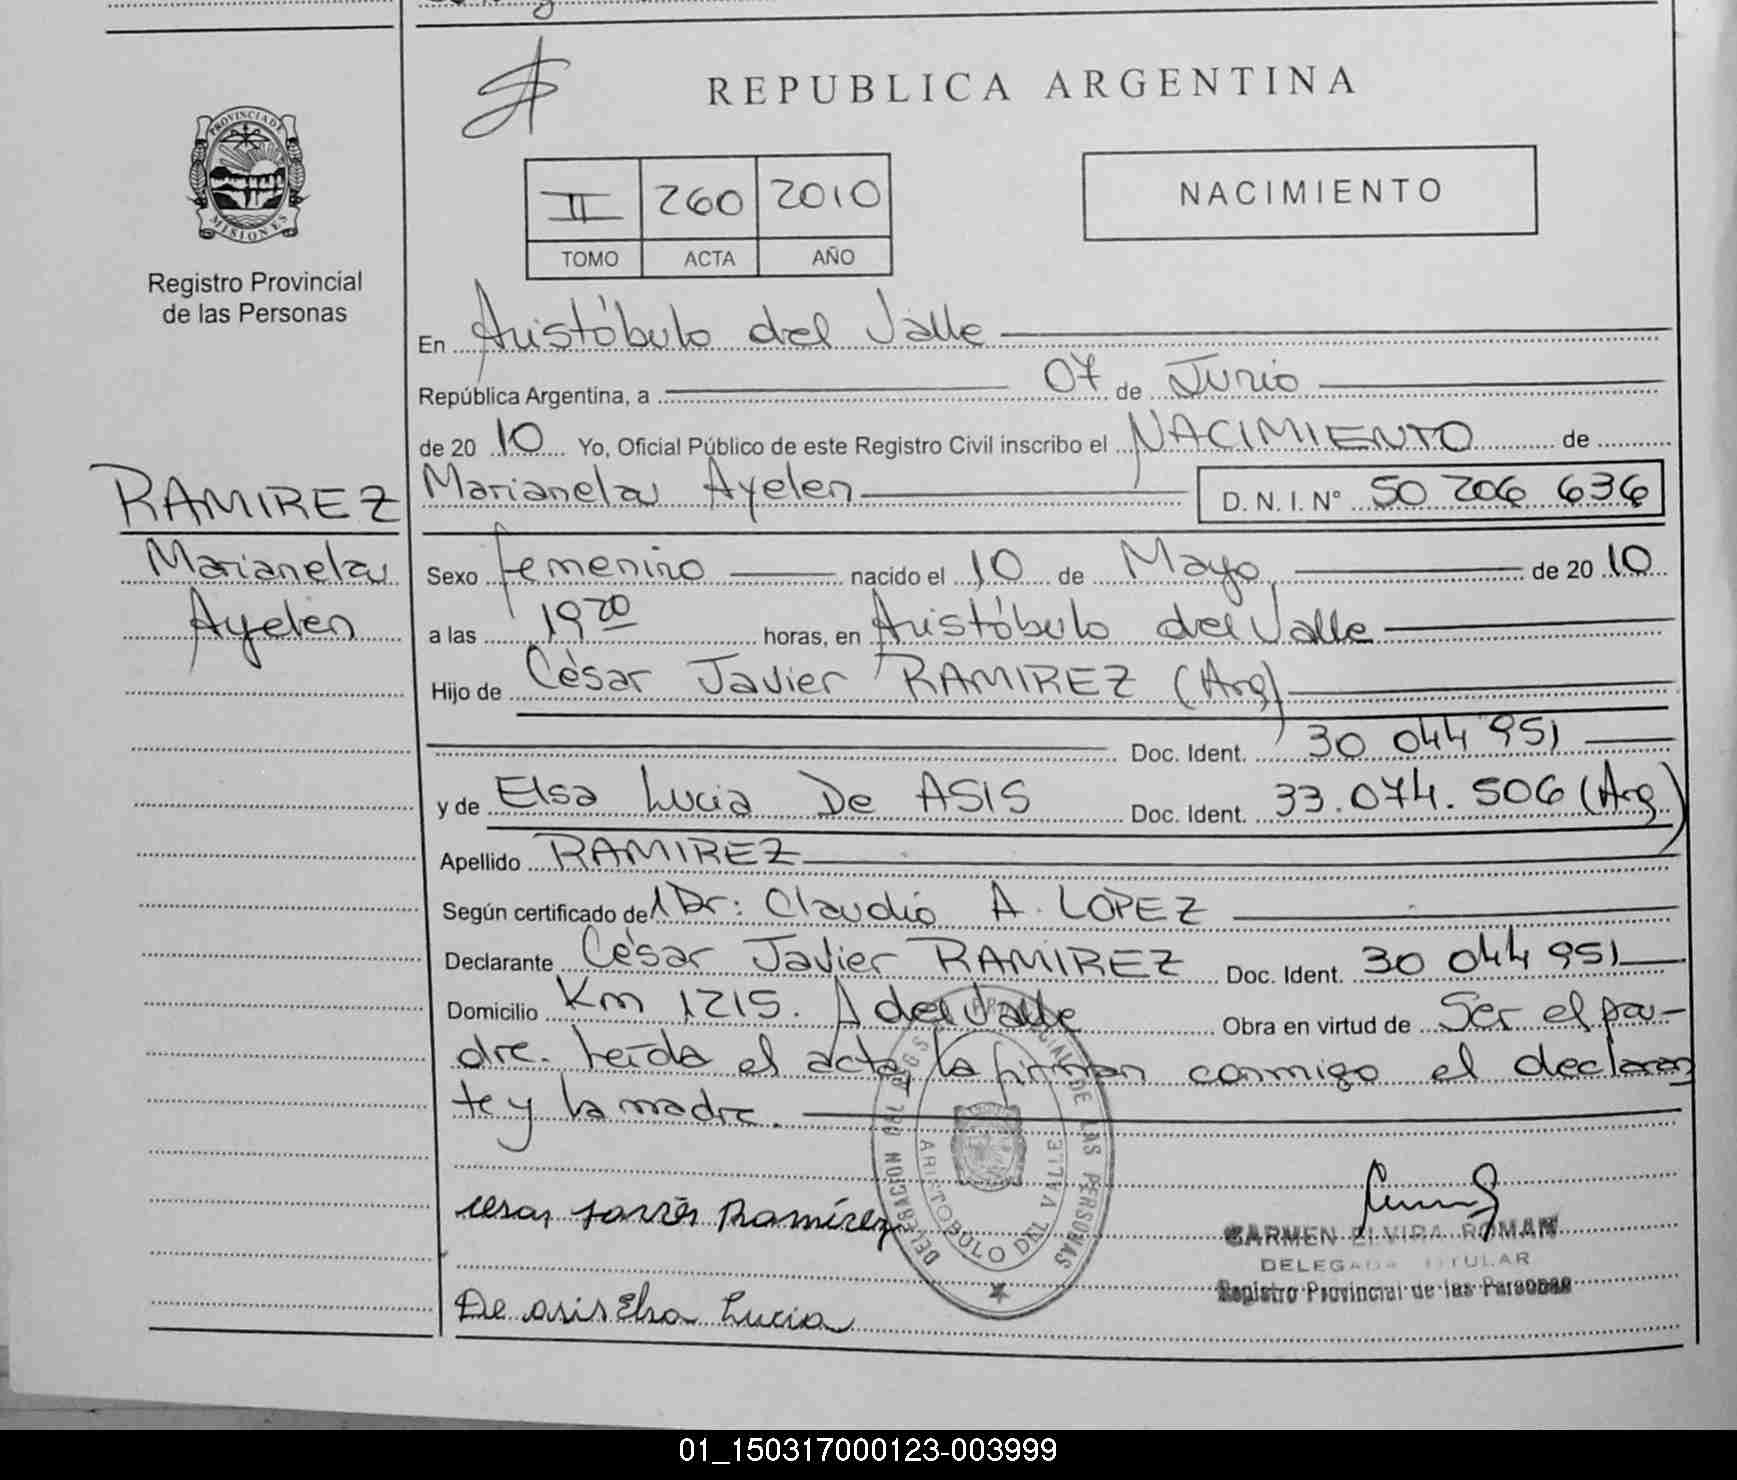 REPUBLICA ARGENTINA
PROVINCIA DE
MISIONES
Registro Provincial
de las Personas
II 260 2010
TOMO ACTA AÑO
NACIMIENTO
En Aristóbulo del Valle
República Argentina, a 07 de Junio
de 20 10 Yo, Oficial Público de este Registro Civil inscribo el NACIMIENTO de
RAMIREZ
Marianela
Ayelen
Marianela Ayelen D.N.I. Nº 50 206 636
Sexo femenino nacido el 10 de Mayo de 20 10
a las 19 20 horas, en Aristóbulo del Valle
Hijo de César Javier RAMIREZ (Arg)
Doc. Ident. 30 044 951
y de Elsa Lucia De ASIS Doc. Ident. 33.074.506 (Arg)
Apellido RAMIREZ
Según certificado del Dr: Claudio A. LOPEZ
Declarante César Javier RAMIREZ Doc. Ident. 30 044 951
Domicilio Km 1215. A del Valle Obra en virtud de Ser el pa-
dre. Leída el acta, la firman conmigo el declaran
te y la madre.
DELEGACION REG. PROVINCIAL DE LAS PERSONAS
ARISTOBULO DEL VALLE
cesar Javier Ramírez
De asis Elsa Lucia
CARMEN ELVIRA ROMAN
DELEGADA TITULAR
Registro Provincial de las Personas
01_150317000123-003999